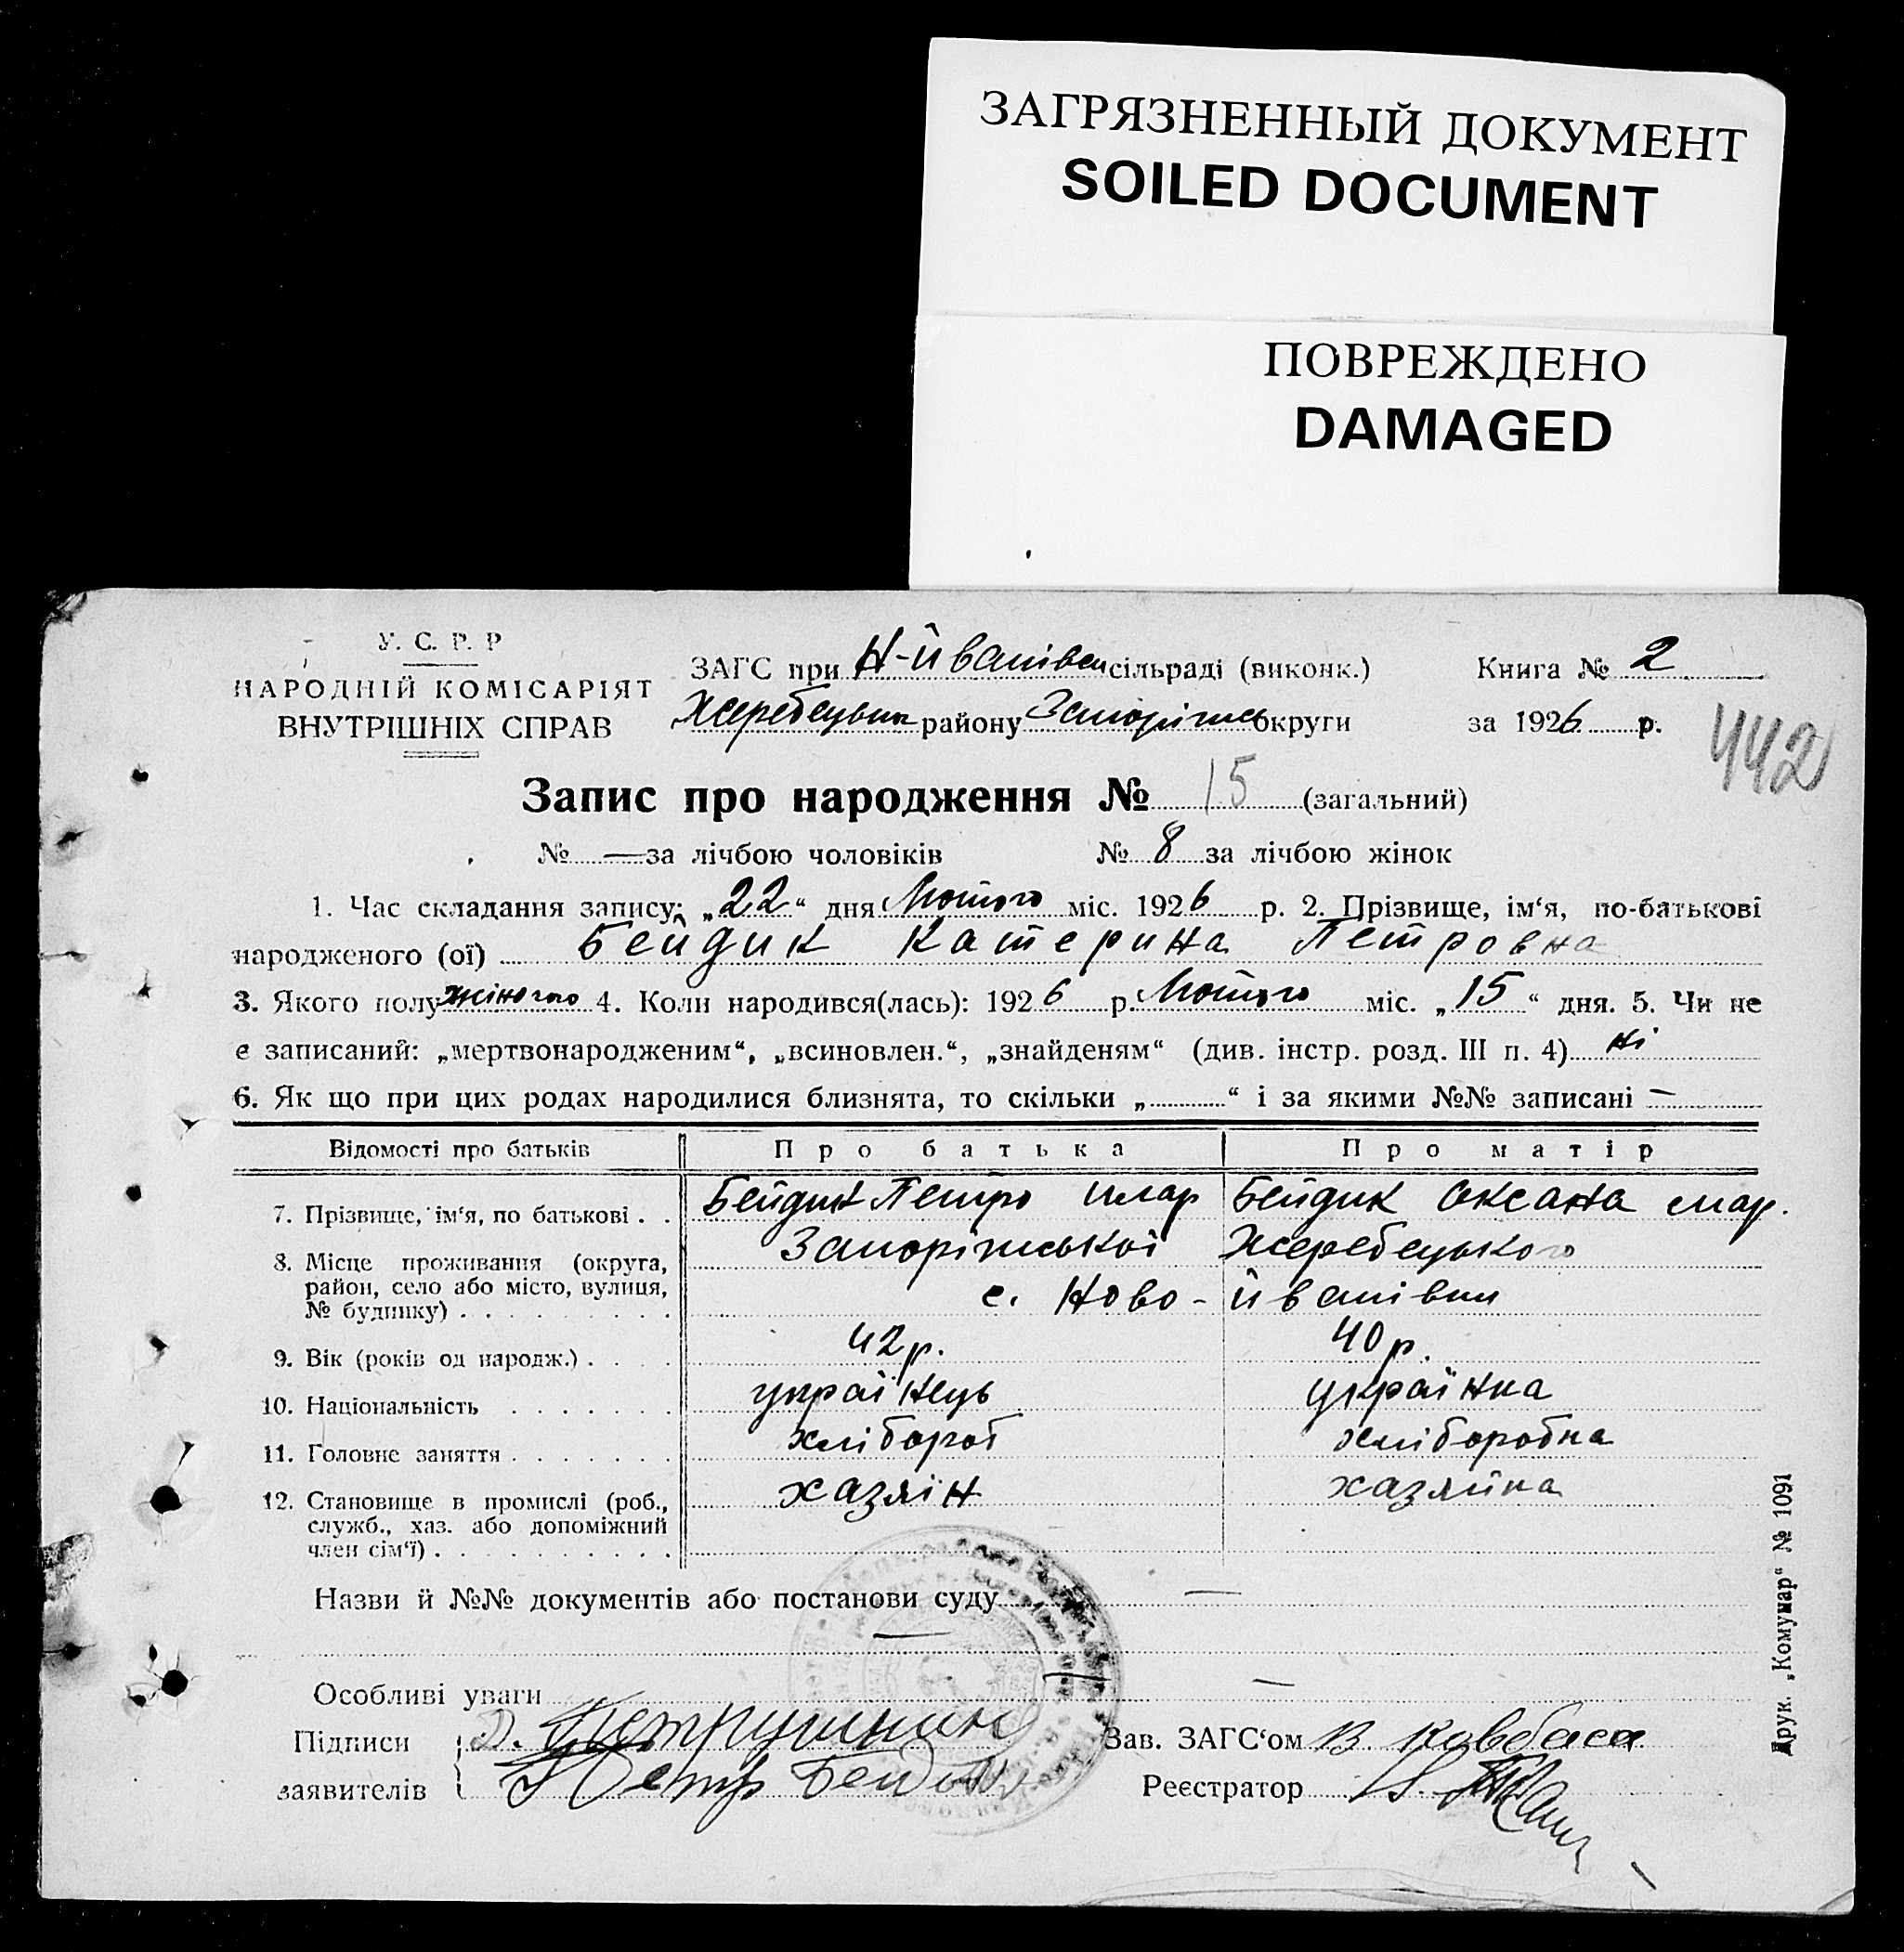 ЗАГРЯЗНЕННЫЙ ДОКУМЕНТ
SOILED DOCUMENT
ПОВРЕЖДЕНО
DAMAGED
У. С. Р. Р
НАРОДНІЙ КОМІСАРІЯТ
ВНУТРІШНІХ СПРАВ
ЗАГС при Н-Йванівськ сільраді (виконк.)
Жеребецьк району Запоріжсь округи
Книга № 2
за 1926 р.
442
Запис про народження № 15 (загальний)
№ — за лічбою чоловіків № 8 за лічбою жінок
1. Час складання запису: „22“ дня Лютого міс. 1926 р. 2. Прізвище, ім‘я, по-батькові
народженого (ої) Бейдик Катерина Петровна
3. Якого полу жіночого 4. Коли народився(лась): 1926 р. Лютого міс. „15“ дня. 5. Чи не
є записаний: „мертвонародженим“, „всиновлен.“, „знайденям“ (див. інстр. розд. III п. 4) ні
6. Як що при цих родах народилися близнята, то скільки „ “ і за якими №№ записані —
Відомості про батьків Про батька Про матір
7. Прізвище, ім‘я, по батькові . . Бейдик Петро Бейдик Оксана
8. Місце проживання (округа, район, село або місто, вулиця, № будинку) . Запоріжської Жеребецького
с. Ново-Йванівки
9. Вік (років од народж.) . 42 р. 40 р.
10. Національність українець українка
11. Головне заняття хлібороб хліборобка
12. Становище в промислі (роб., служб., хаз. або допоміжний член сім‘ї) . хазяїн хазяйка
Назви й №№ документів або постанови суду —
—
Особливі уваги —
Підписи заявителів
Петро Бейдик
Зав. ЗАГС‘ом В. Ковбаса
Реєстратор
Друк. „Комунар“ № 1091